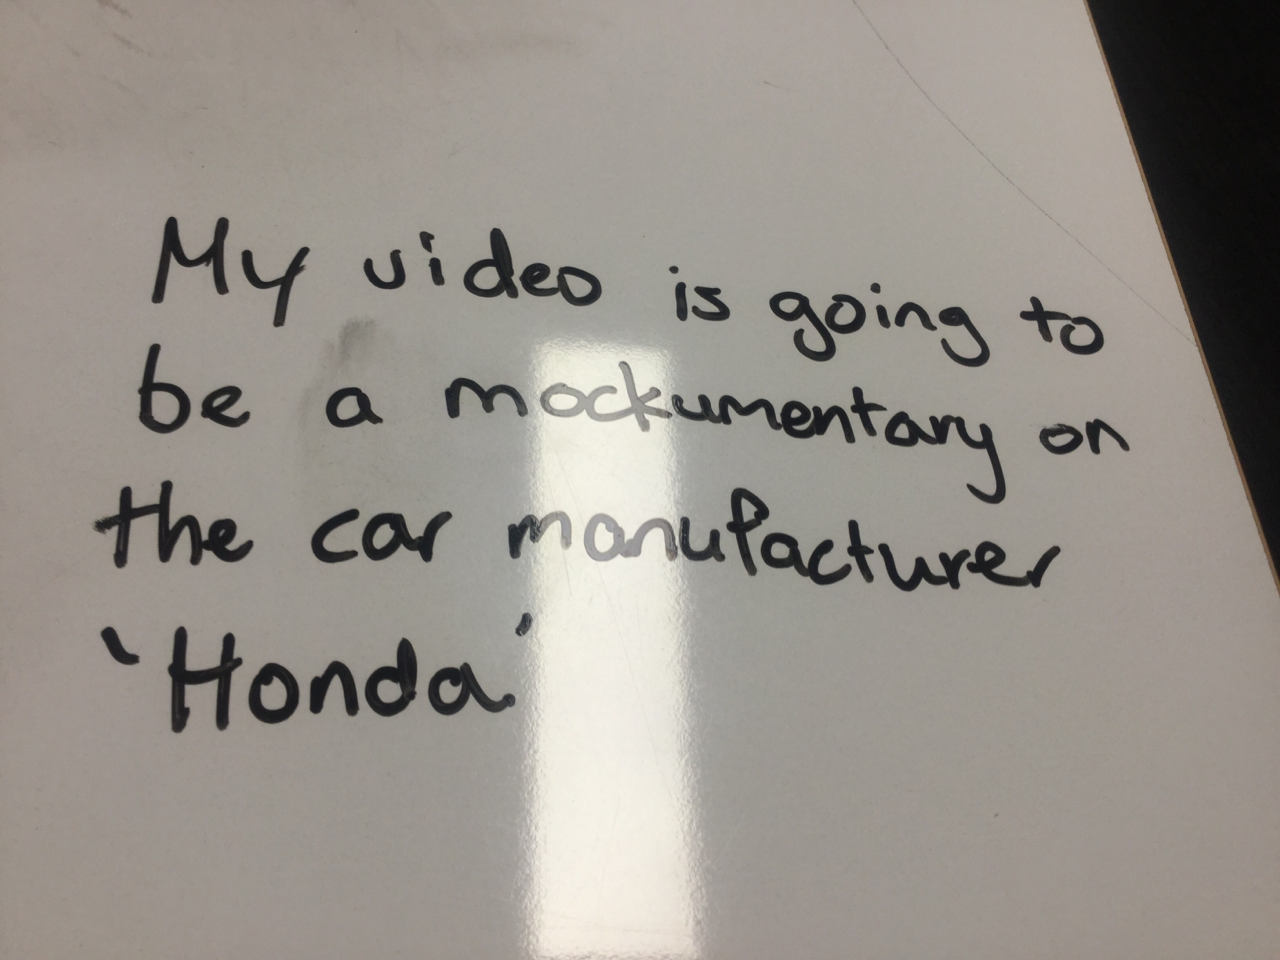 My video is going to
be a mockumentary on
the car manufacturer
'Honda.'